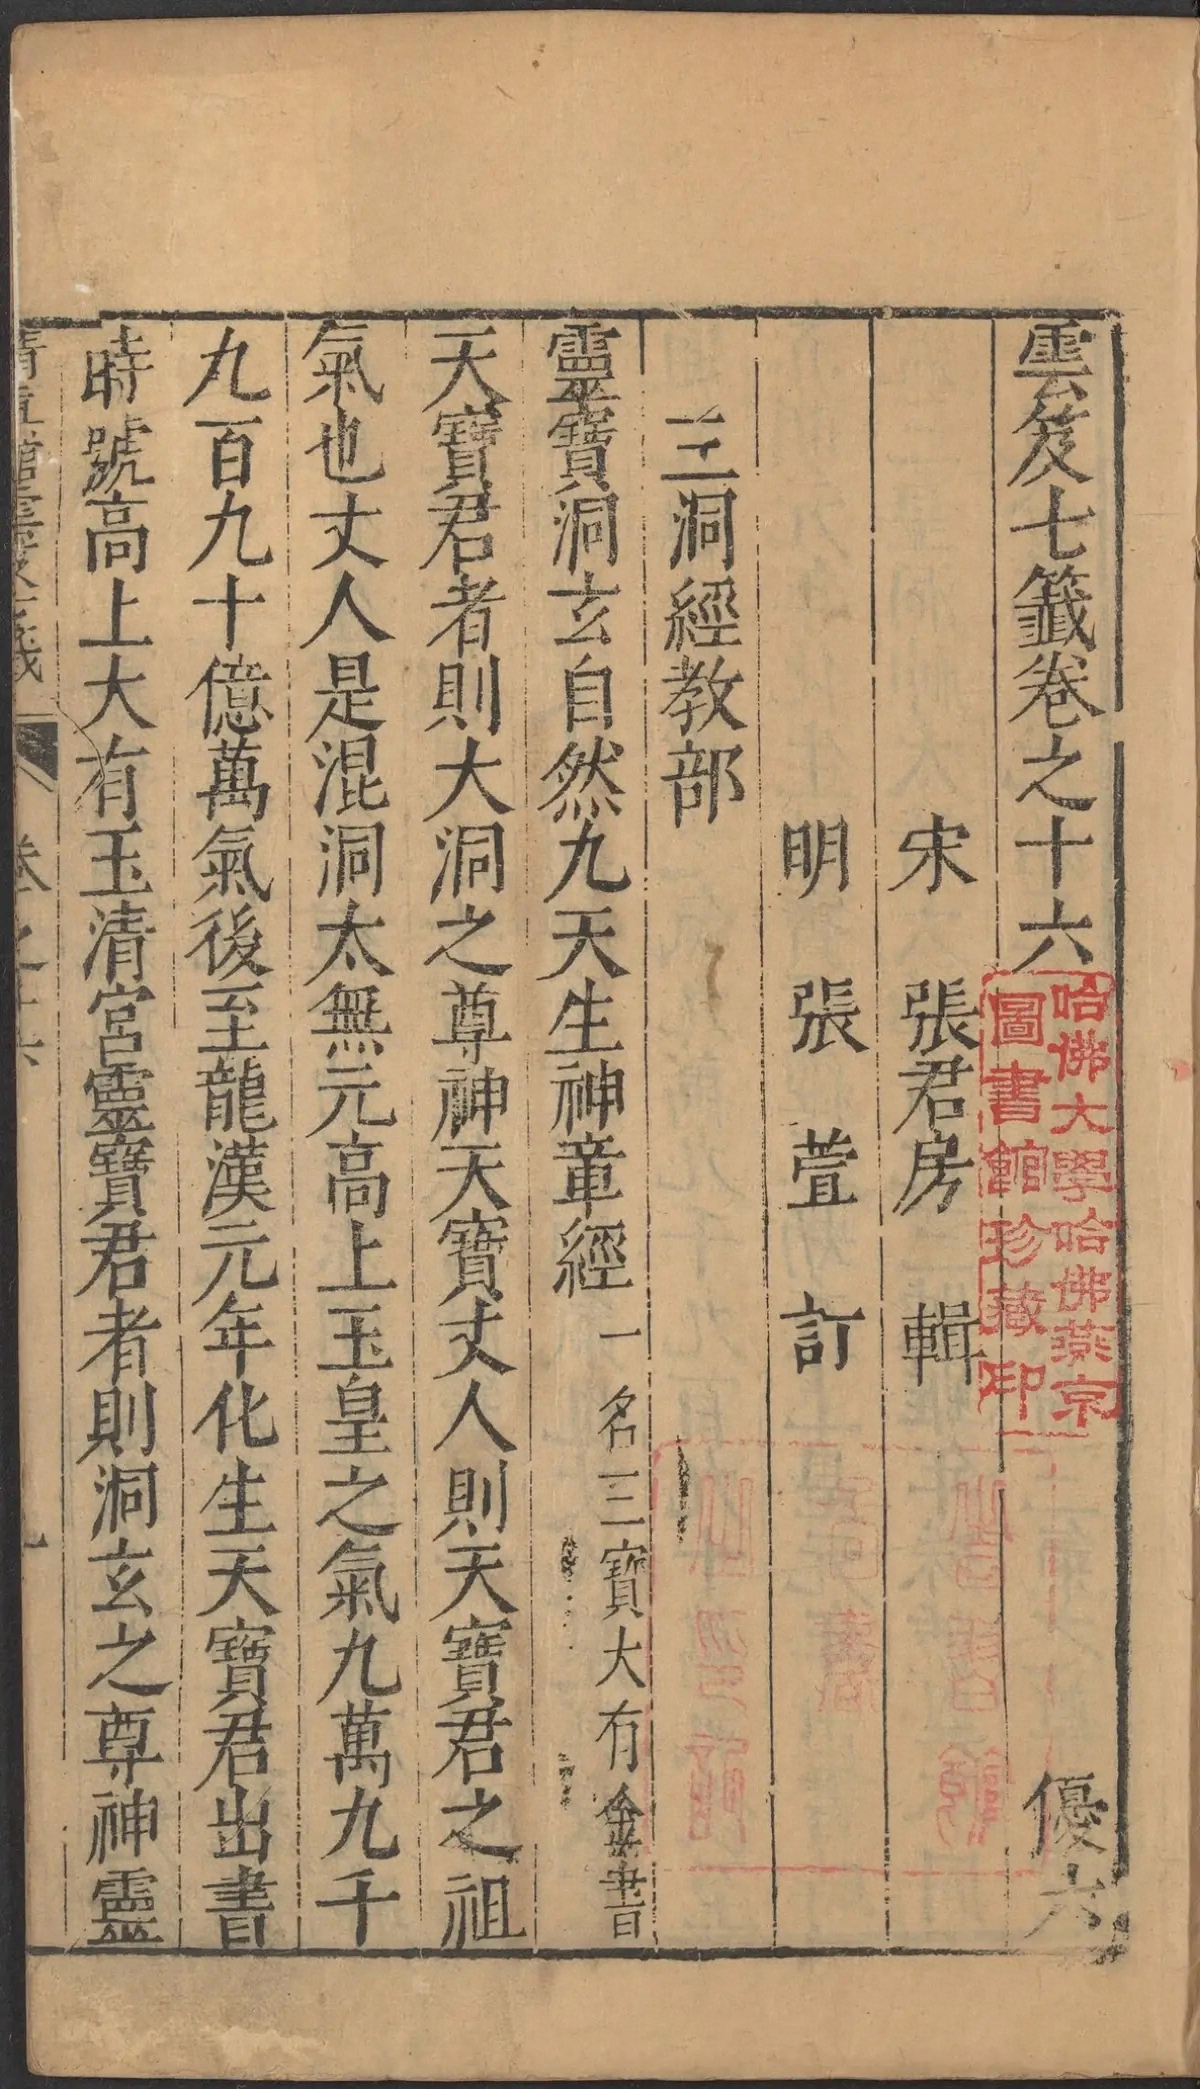 雲笈七籤卷之十六 優六
宋 張君房 輯
明 張萱 訂
三洞經教部
靈寶洞玄自然九天生神章經 一名三寶大有金書
天寶君者則大洞之尊神天寶丈人則天寶君之祖
氣也丈人是混洞太無元高上玉皇之氣九萬九千
九百九十億萬氣後至龍漢元年化生天寶君出書
時號高上大有玉清宮靈寶君者則洞玄之尊神靈
卷之十六
哈佛大學哈佛燕京
圖書館珍藏印